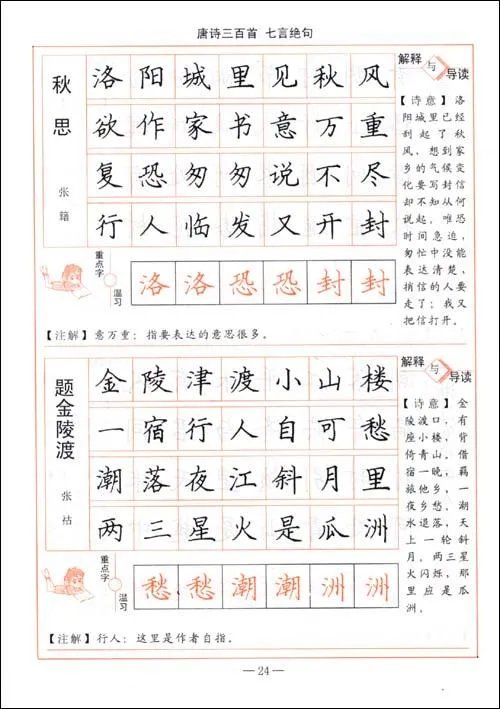 唐诗三百首 七言绝句
秋思
张籍
洛阳城里见秋风
欲作家书意万重
复恐匆匆说不尽
行人临发又开封
解释与导读
【诗意】洛
阳城里已经
刮起了秋
风，想到家
乡的气候变
化要写封信
却不知从何
说起，唯恐
时间急迫，
匆忙中没能
表达清楚，
捎信的人要
走了；我又
把信打开。
重点字
温习
洛洛恐恐封封
【注解】意万重：指要表达的意思很多。
题金陵渡
张祜
金陵津渡小山楼
一宿行人自可愁
潮落夜江斜月里
两三星火是瓜洲
解释与导读
【诗意】金
陵渡口，有
座小楼，背
倚青山。借
宿一晚，羁
旅他乡，一
夜乡愁，潮
水退落，天
上一轮斜
月，两三星
火闪烁，那
里应是瓜
洲。
重点字
温习
愁愁潮潮洲洲
【注解】行人：这里是作者自指。
—24—